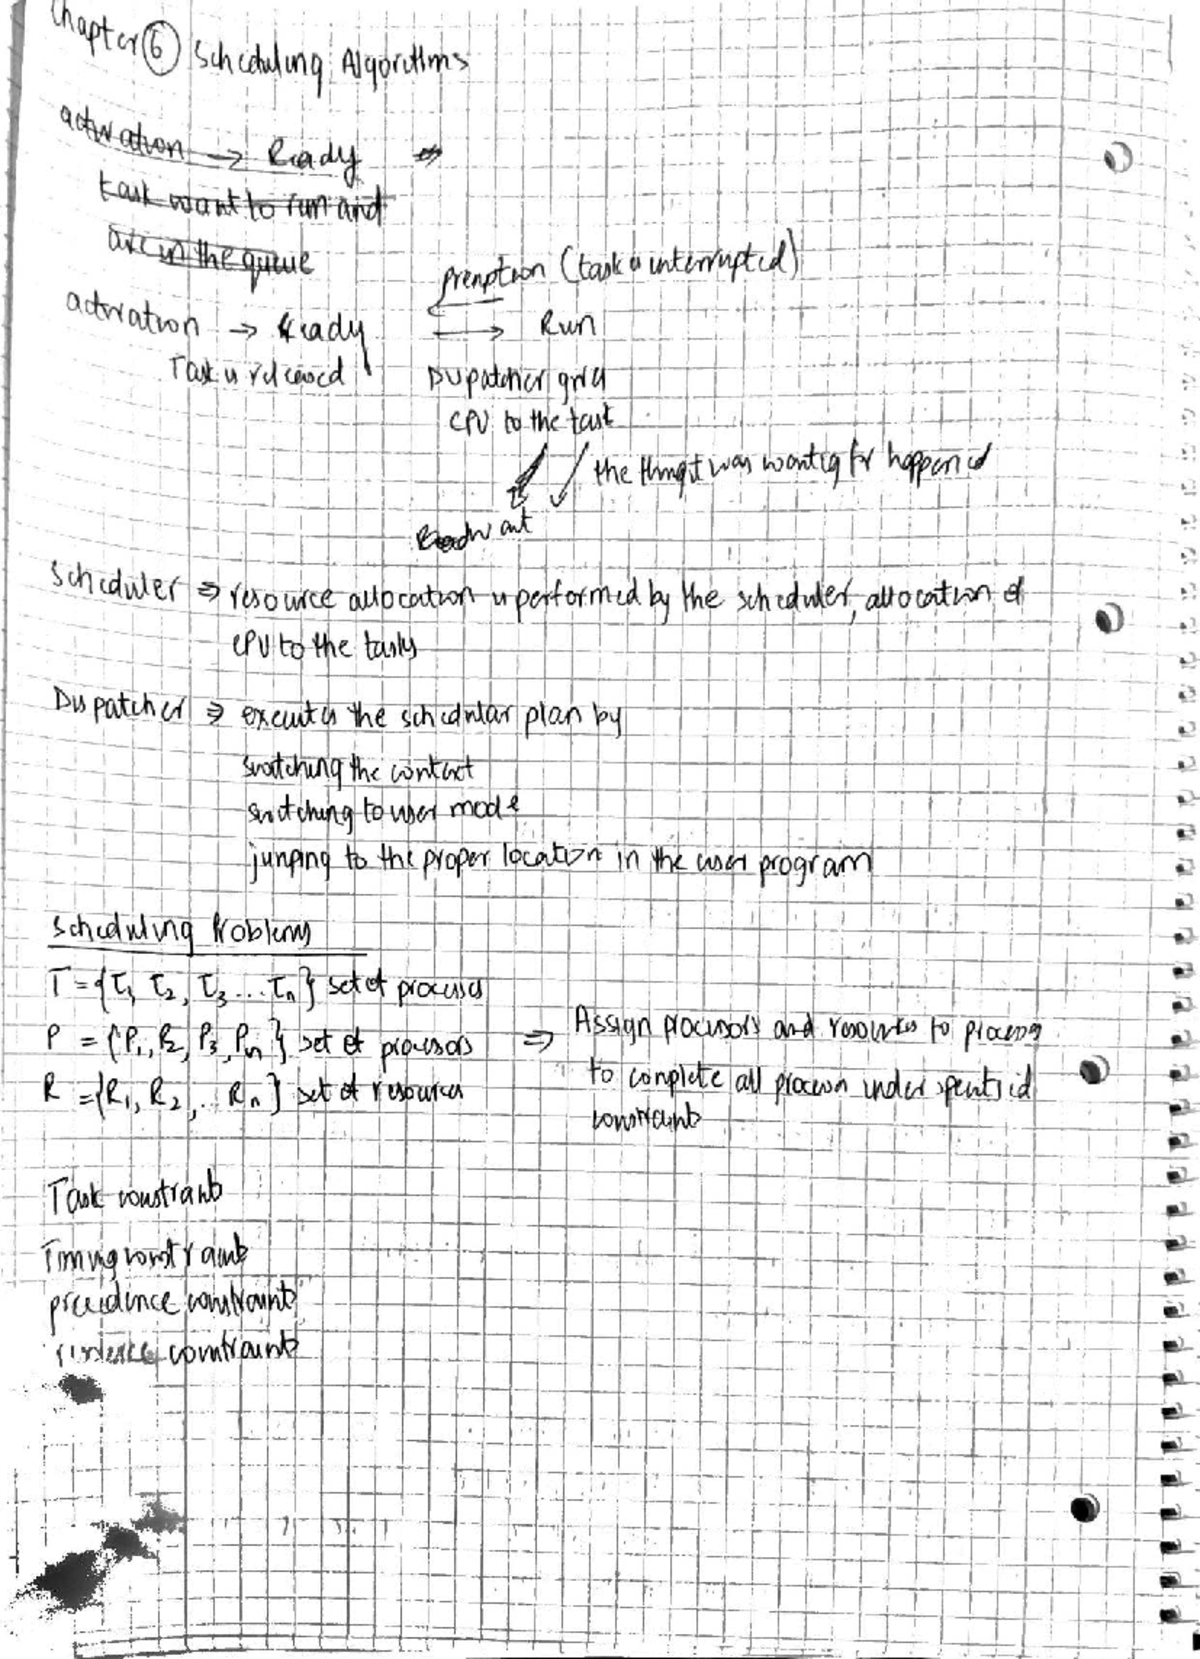 Chapter 6 Scheduling Algorithms
activation → Ready ⇒
task want to run and
are in the queue
premption (task is interrupted)
activation → Ready → Run
Task is released
Dispatcher gives
CPU to the task
the thing it was waiting for happened
wait
Scheduler ⇒ resource allocation is performed by the scheduler, allocation of
CPU to the tasks
Dispatcher ⇒ executes the schedular plan by
switching the context
switching to user mode
jumping to the proper location in the user program
Scheduling Problems
T = {τ1, τ2, τ3 ... τn} set of processes
P = {P1, P2, P3, Pm} set of processors ⇒ Assign processors and resources to process
R = {R1, R2, .. Rn} set of resources to complete all process under
constraints
Task constraints
Timing constraints
precedence constraints
constraints